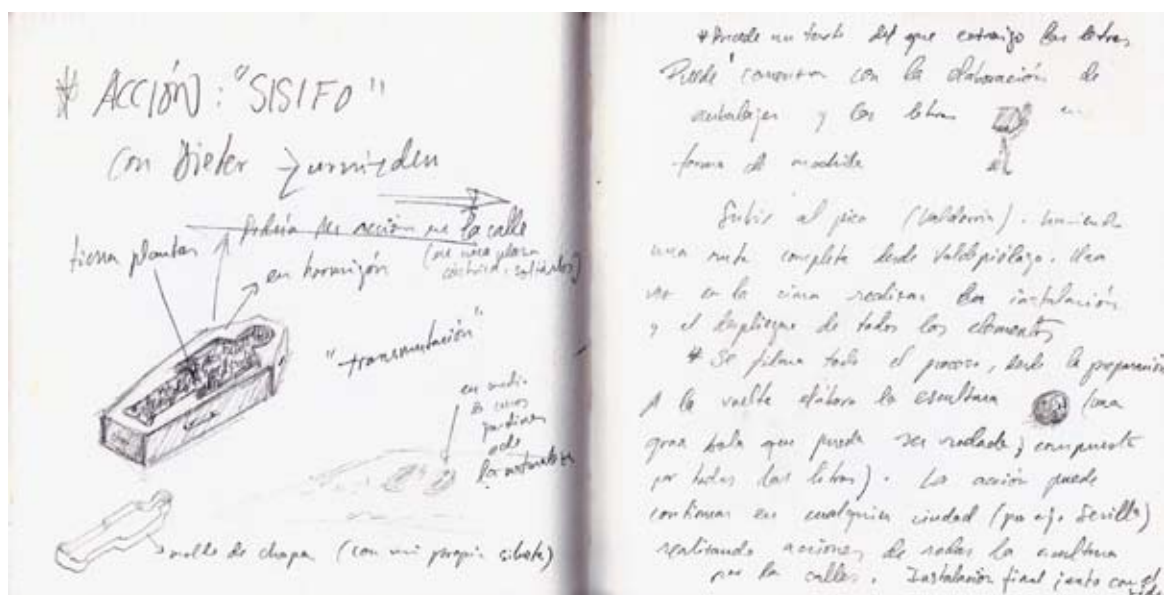 * ACCIÓN: "SISIFO"
con Dieter
Podría ser acción en la calle
(en una plaza
tierra plantas
en hormigón
"transmutación"
en medio
de unos
jardines
o de
la naturaleza
molde de chapa (con mi propia silueta)
* Procede un texto del que extraigo las letras
Puede comenzar con la elaboración de
embalajes y las letras en
forma de mochila
Subir al pico (Valdorria). haciendo
una ruta completa desde Valdepiélago. Una
vez en la cima realizar la instalación
y el despliegue de todos los elementos
* Se filma todo el proceso, desde la preparación
A la vuelta elaboro la escultura (una
gran bola que puede ser rodada, compuesta
por todas las letras). La acción puede
continuar en cualquier ciudad (por ejo Sevilla)
realizando acciones de rodar la escultura
por la calle. Instalación final junto con el